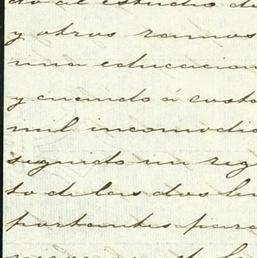 do al estudio de
y otros ramos
una educacion
y cuando á costa
mil incomodi
seguido un reg
to de las dos le
portantes para